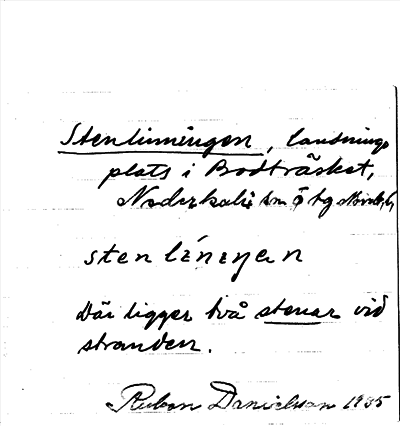 Stenlinningen, landnings
plats i Bodträsket,
Nederkalix sn
stenlíniŋen
Där ligger två stenar vid
stranden.
Ruben Danielsson 1935